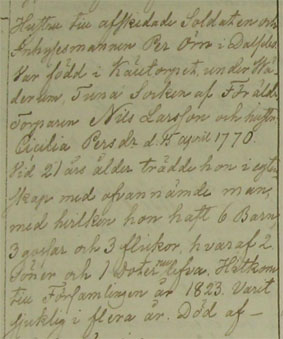 Hustru till afskedade Soldaten och
Inhysesmannen Per Örn i
Var född i under
Tuna Socken af Föräld
Torparen Nils Larsson och hustru
Cicilia Persdr d. 15 april 1770.
Vid 21 års ålder trädde hon i egten
skap med ofvannämde man,
med hvilken hon haft 6 Barn
3 gossar och 3 flickor, hvaraf 2
Söner och 1 doter nu lefva. Hitkom
till Församlingen år 1823. Varit
sjuklig i flera år. Död af —